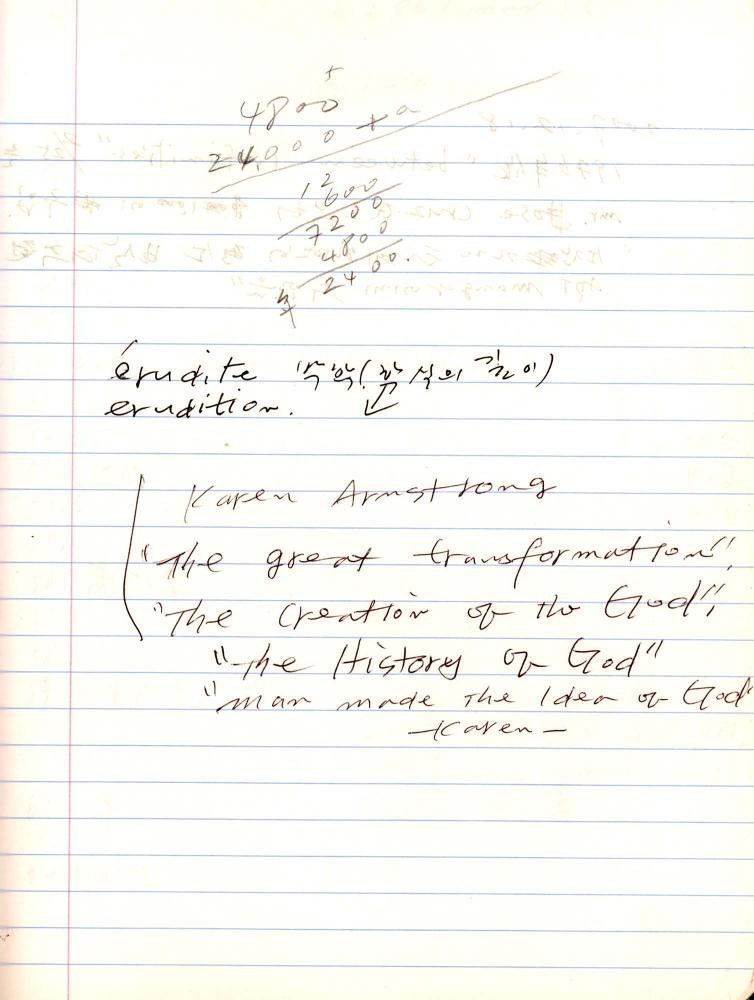 5
4800
24,000 + a
12
600
7200
4800
2400.
érudite 박학(학식의 깊이)
erudition.
Karen Armstrong
"The great transformation",
"The Creation of the God",
"The History of God"
"man made the Idea of God
—Karen—